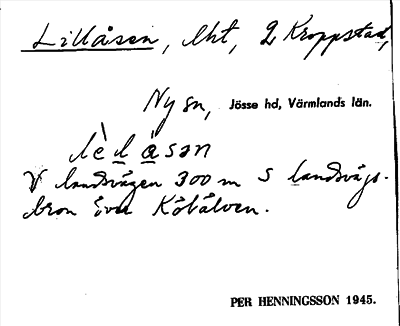 Lillåsen, lht, 2 Kroppstad,
Ny sn, Jösse hd, Värmlands län.
V landsvägen 300 m S landsvägs-
bron över Köläälven.
PER HENNINGSSON 1945.